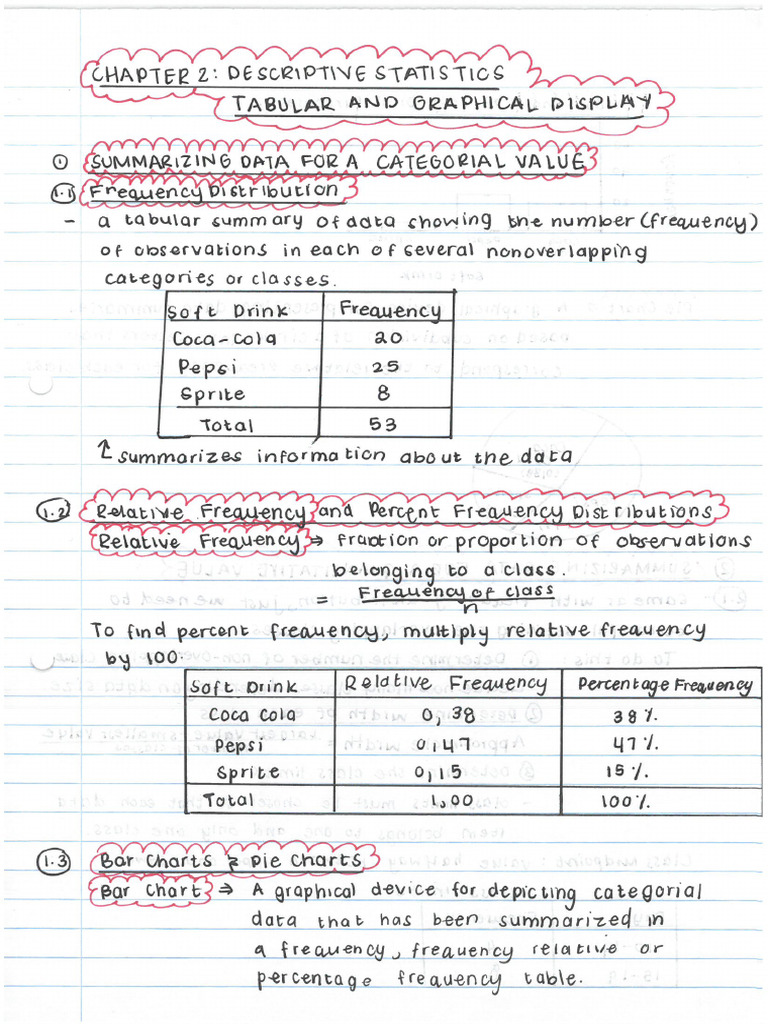 CHAPTER 2: DESCRIPTIVE STATISTICS
TABULAR AND GRAPHICAL DISPLAY
① SUMMARIZING DATA FOR A CATEGORIAL VALUE
1.1 Frequency Distribution
- a tabular summary of data showing the number (frequency)
of observations in each of several nonoverlapping
categories or classes.
Soft Drink Frequency
Coca-Cola 20
Pepsi 25
Sprite 8
Total 53
↑ summarizes information about the data
1.2 Relative Frequency and Percent Frequency Distributions
Relative Frequency → fraction or proportion of observations
belonging to a class.
= Frequency of class
n
To find percent frequency, multiply relative frequency
by 100:
Soft Drink Relative Frequency Percentage Frequency
Coca Cola 0,38 38%
Pepsi 0,47 47%
Sprite 0,15 15%
Total 1,00 100%
1.3 Bar Charts & Pie Charts
Bar Chart → A graphical device for depicting categorial
data that has been summarized in
a frequency, frequency relative or
percentage frequency table.